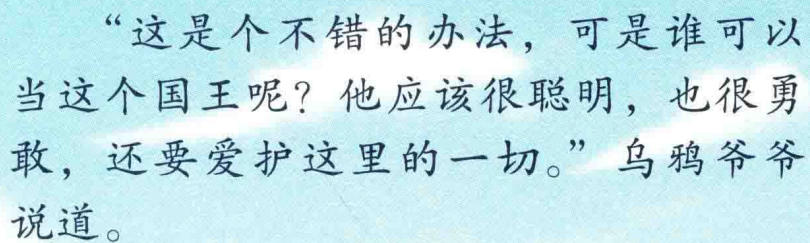 “这是个不错的办法，可是谁可以
当这个国王呢？他应该很聪明，也很勇
敢，还要爱护这里的一切。”乌鸦爷爷
说道。